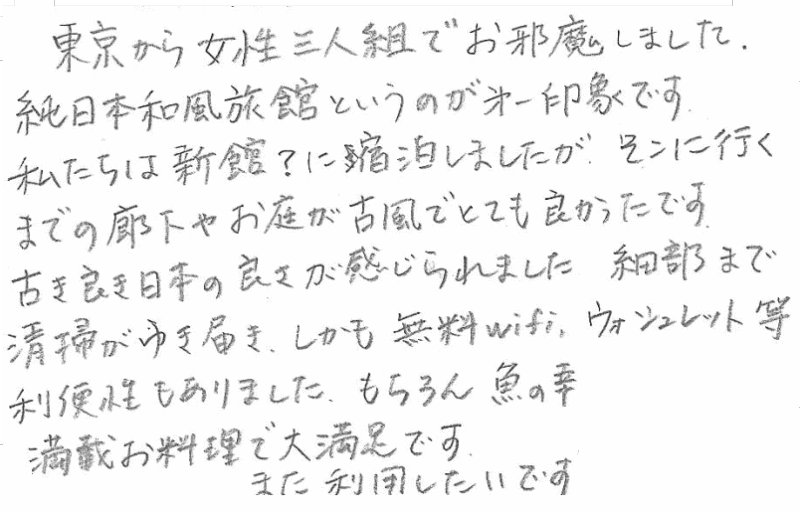 東京から女性三人組でお邪魔しました.
純日本和風旅館というのが第一印象です.
私たちは新館?に宿泊しましたが.そこに行く
までの廊下やお庭が古風でとても良かったです.
古き良き日本の良さが感じられました 細部まで
清掃がゆき届き、しかも無料wifi,ウォシュレット等
利便性もありました.もちろん魚の幸
満載お料理で大満足です.
また利用したいです